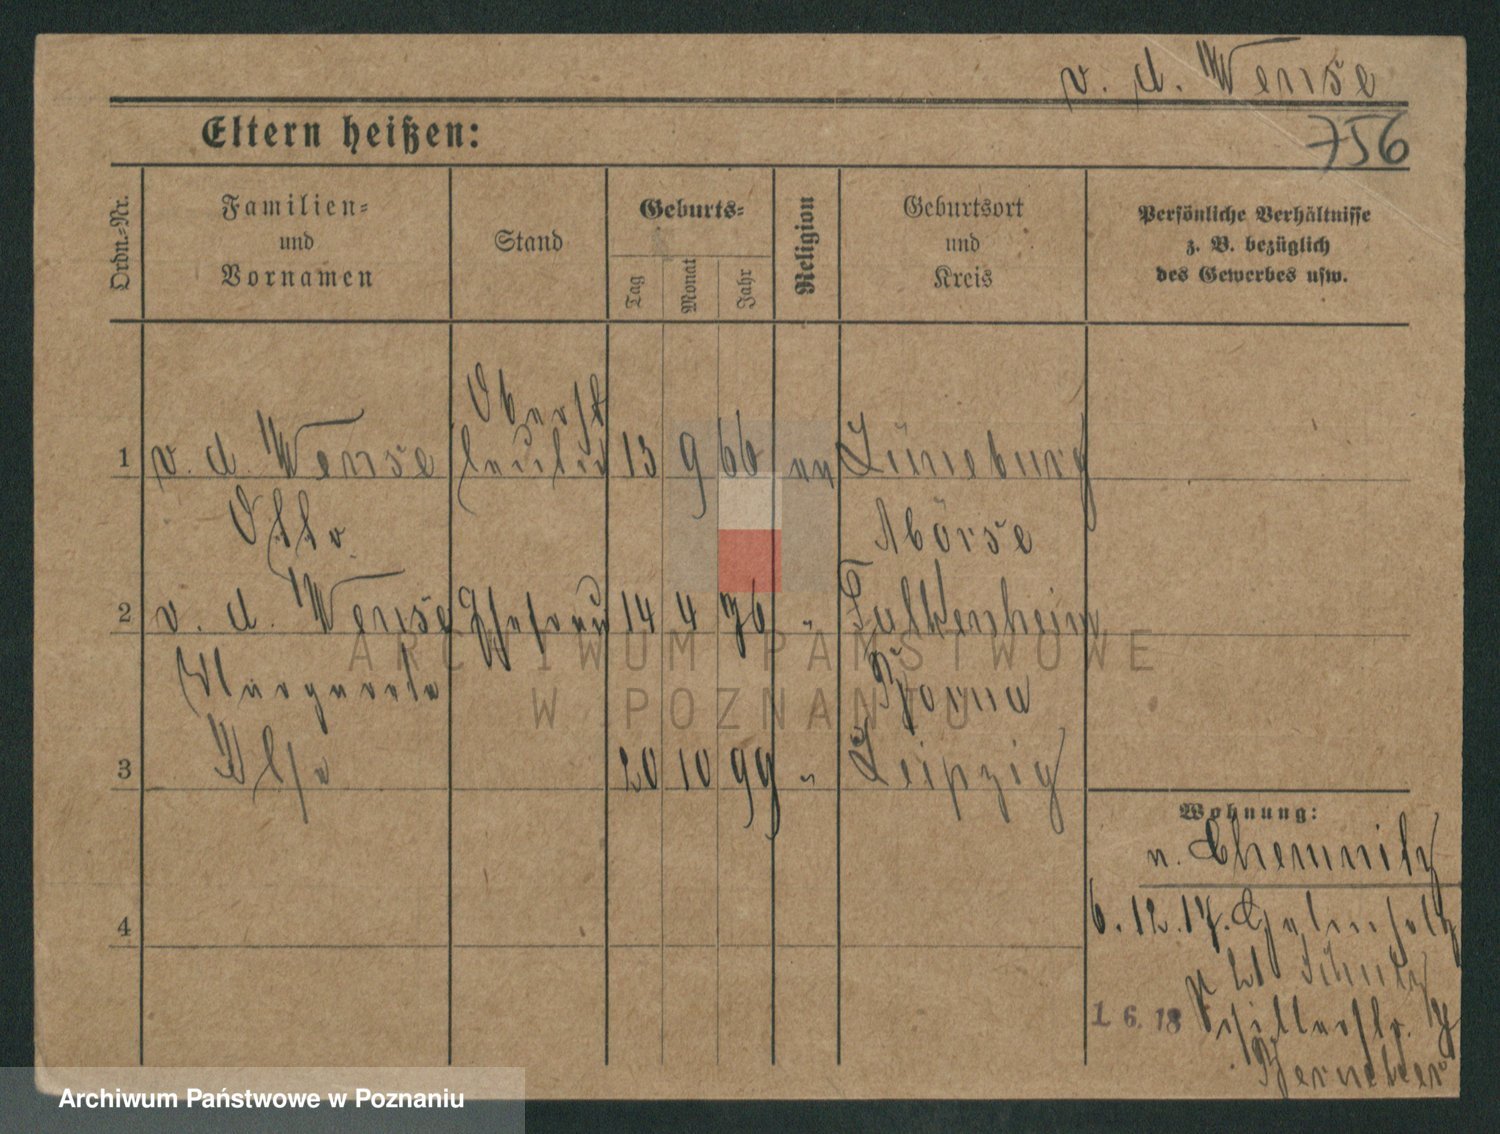 v. d. Wense
756
Eltern heißen:
Ordn.-Nr.
Familien-
und
Vornamen
Stand
Geburts-
Tag
Monat
Jahr
Religion
Geburtsort
und
Kreis
Persönliche Verhältnisse
z. B. bezüglich
des Gewerbes usw.
Oberst
1 v. d. Wense leutn 13 9 66 ev Lüneburg
Otto Mörse
2 v. d. Wense Ehefrau 14 4 76 " Falkenhein
Margarete Borna
3 Ilse 20 10 99 " Leipzig
Wohnung:
n. Chemnitz
4
6. 12. 17.
1. 6. 18 Schillerstr.
ARCHIWUM PAŃSTWOWE
W POZNANIU
Archiwum Państwowe w Poznaniu